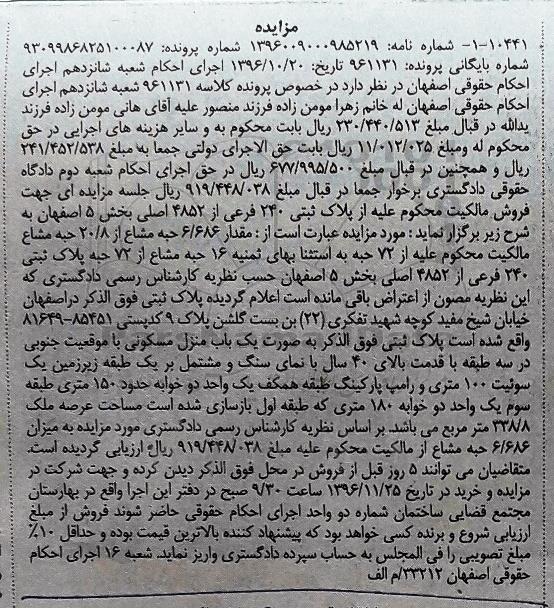 مزایده
۱۰۴۴۱-۱- شماره نامه: ۱۳۹۶۰۰۹۰۰۰۹۸۵۲۱۹ شماره پرونده: ۹۳۰۹۹۸۶۸۲۵۱۰۰۰۸۷
شماره بایگانی پرونده: ۹۶۱۱۳۱ تاریخ: ۱۳۹۶/۱۰/۲۰ اجرای احکام شعبه شانزدهم اجرای
احکام حقوقی اصفهان در نظر دارد در خصوص پرونده کلاسه ۹۶۱۱۳۱ شعبه شانزدهم اجرای
احکام حقوقی اصفهان له خانم زهرا مومن زاده فرزند منصور علیه آقای هانی مومن زاده فرزند
یدالله در قبال مبلغ ۲۳۰/۴۴۰/۵۱۳ ریال بابت محکوم به و سایر هزینه های اجرایی در حق
محکوم له ومبلغ ۱۱/۰۱۲/۰۲۵ ریال بابت حق الاجرای دولتی جمعا به مبلغ ۲۴۱/۴۵۲/۵۳۸
ریال و همچنین در قبال مبلغ ۶۷۷/۹۹۵/۵۰۰ ریال در حق اجرای احکام شعبه دوم دادگاه
حقوقی دادگستری برخوار جمعا در قبال مبلغ ۹۱۹/۴۴۸/۰۳۸ ریال جلسه مزایده ای جهت
فروش مالکیت محکوم علیه از پلاک ثبتی ۲۴۰ فرعی از ۴۸۵۲ اصلی بخش ۵ اصفهان به
شرح زیر برگزار نماید: مورد مزایده عبارت است از : مقدار ۶/۶۸۶ حبه مشاع از ۲۰/۸ حبه مشاع
مالکیت محکوم علیه از ۷۲ حبه به استثنا بهای ثمنیه ۱۶ حبه مشاع از ۷۲ حبه پلاک ثبتی
۲۴۰ فرعی از ۴۸۵۲ اصلی بخش ۵ اصفهان حسب نظریه کارشناس رسمی دادگستری که
این نظریه مصون از اعتراض باقی مانده است اعلام گردیده پلاک ثبتی فوق الذکر دراصفهان
خیابان شیخ مفید کوچه شهید تفکری (۲۲) بن بست گلشن پلاک ۹ کدپستی ۸۵۴۵۱-۸۱۶۴۹
واقع شده است پلاک ثبتی فوق الذکر به صورت یک باب منزل مسکونی با موقعیت جنوبی
در سه طبقه با قدمت بالای ۴۰ سال با نمای سنگ و مشتمل بر یک طبقه زیرزمین یک
سوئیت ۱۰۰ متری و رامپ پارکینگ طبقه همکف یک واحد دو خوابه حدود ۱۵۰ متری طبقه
سوم یک واحد دو خوابه ۱۸۰ متری که طبقه اول بازسازی شده است مساحت عرصه ملک
۳۳۸/۸ متر مربع می باشد. بر اساس نظریه کارشناس رسمی دادگستری مورد مزایده به میزان
۶/۶۸۶ حبه مشاع از مالکیت محکوم علیه مبلغ ۹۱۹/۴۴۸/۰۳۸ ریال ارزیابی گردیده است.
متقاضیان می توانند ۵ روز قبل از فروش در محل فوق الذکر دیدن کرده و جهت شرکت در
مزایده و خرید در تاریخ ۱۳۹۶/۱۱/۲۵ ساعت ۹/۳۰ صبح در دفتر این اجرا واقع در بهارستان
مجتمع قضایی ساختمان شماره دو واحد اجرای احکام حقوقی حاضر شوند فروش از مبلغ
ارزیابی شروع و برنده کسی خواهد بود که پیشنهاد کننده بالاترین قیمت بوده و حداقل ۱۰٪
مبلغ تصویبی را فی المجلس به حساب سپرده دادگستری واریز نماید. شعبه ۱۶ اجرای احکام
حقوقی اصفهان ۳۳۲۱۲/م الف